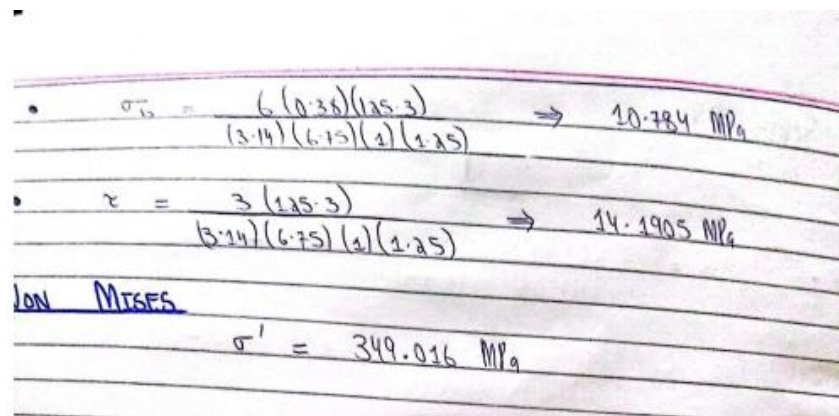 • σb = 6 (0.38)(125.3) / (3.14)(6.75)(1)(1.25) ⇒ 10.784 MPa
• τ = 3 (125.3) / (3.14)(6.75)(1)(1.25) ⇒ 14.1905 MPa
VON MISES
σ' = 349.016 MPa